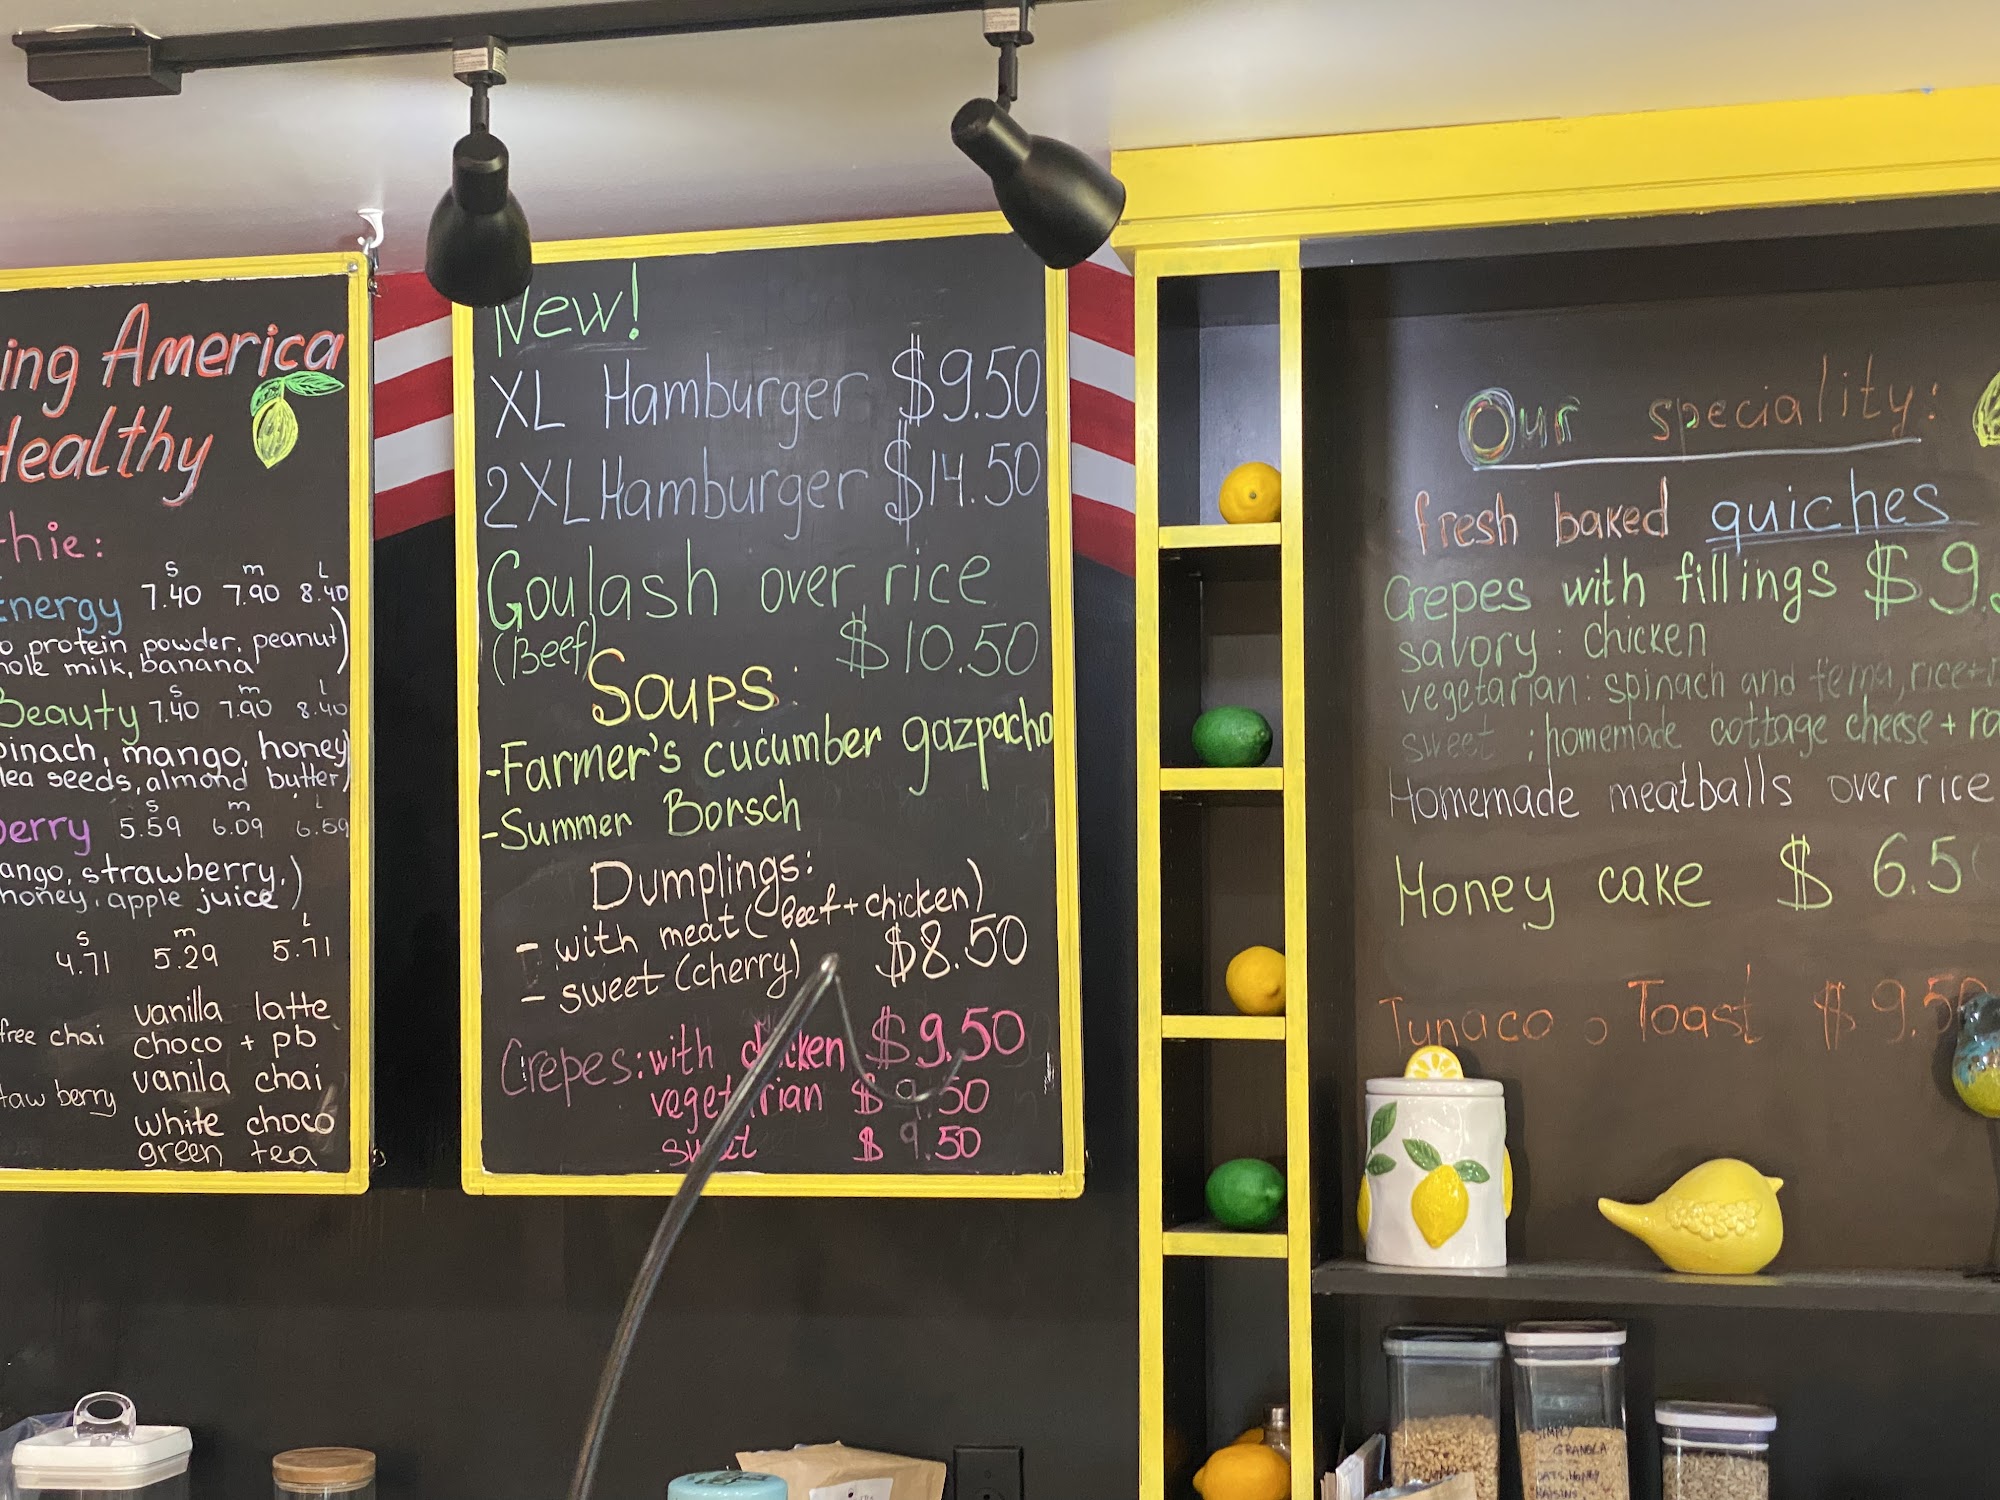 ing America
Healthy
hie:
s m L
Energy 7.40 7.90 8.40
o protein powder, peanut
hole milk, banana)
s m L
Beauty 7.40 7.90 8.40
pinach, mango, honey
lea seeds, almond butter)
s m L
berry 5.59 6.09 6.59
ango, strawberry,
honey, apple juice)
s m L
4.71 5.29 5.71
vanilla latte
free chai choco + pb
vanila chai
taw berry
white choco
green tea
New!
XL Hamburger $9.50
2XL Hamburger $14.50
Goulash over rice
(Beef) $10.50
Soups:
-Farmer's cucumber gazpacho
-Summer Borsch
Dumplings:
- with meat (Beef + chicken)
- sweet (cherry) $8.50
Crepes: with chicken $9.50
vegetarian $9.50
sweet $9.50
Our speciality:
fresh baked quiches
Crepes with fillings $9.
savory: chicken
vegetarian: spinach and fema, rice+
sweet: homemade cottage cheese + ra
Homemade meatballs over rice
Honey cake $6.50
Tunaco, Toast $9.50
SIMPLY
GRANOLA
OATS, HONEY
RAISINS